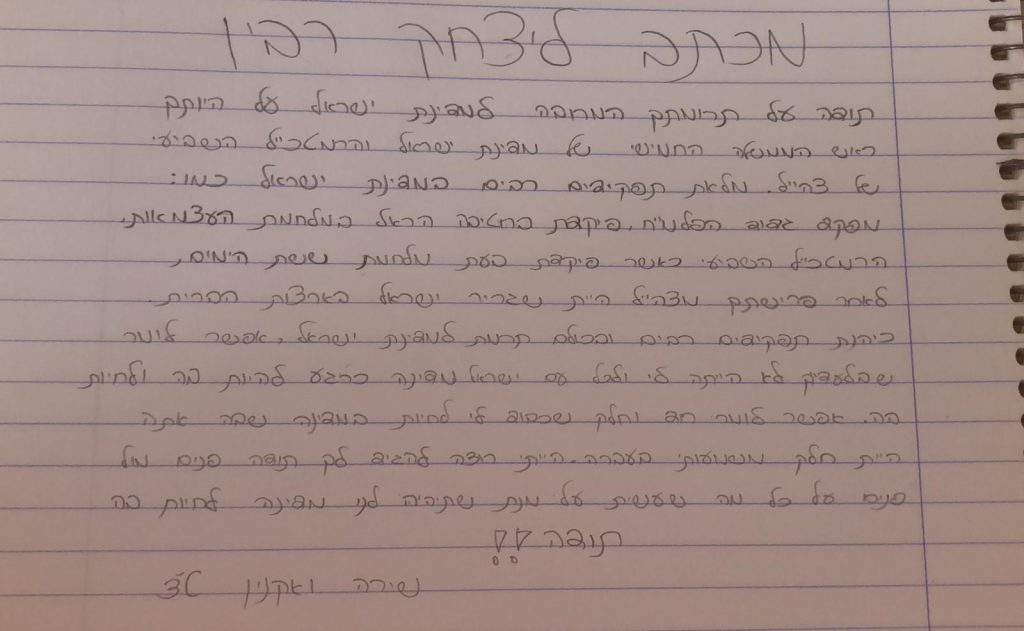 מכתב ליצחק רבין
תודה על תרומתך המרובה למדינת ישראל על היותך
ראש הממשלה החמישי של מדינת ישראל והרמטכ״ל השביעי
של צה״ל. מלאת תפקידים רבים במדינת ישראל כמו:
מפקד גדוד הפלמ״ח, פיקדת בחטיבה הראל במלחמת העצמאות,
הרמטכ״ל השביעי כאשר פיקדת בעת מלחמת ששת הימים,
לאחר פרישתך מצה״ל היית שגריר ישראל בארצות הברית
כיהנת תפקידים רבים ובכולם תרמת למדינת ישראל, אפשר לומר
שבלעדיך לא הייתה לי ולכל עם ישראל מדינה כרגע להיות בה ולחיות
בה. אפשר לומר חד וחלק שכבוד לי לחיות במדינה שבה אתה
היית חלק משמעותי בעברה. הייתי רוצה להגיד לך תודה פנים מול
פנים על כל מה שעשית על מנת שתיהיה לנו מדינה לחיות בה
תודה!!
שירה ואקנין